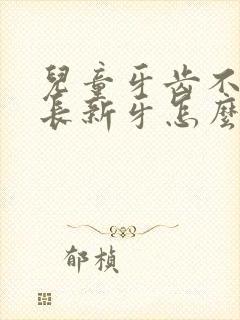 兒童牙齒不
長新牙怎麼
郁楨